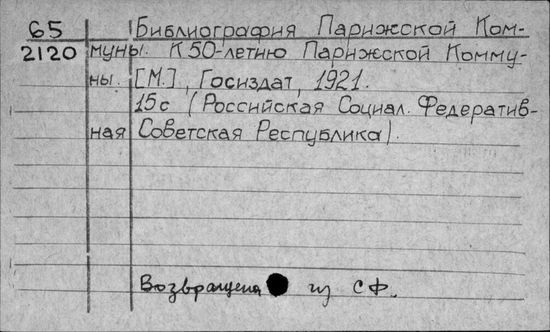 65 Библиография Парижской Ком-
2120 муны. К 50-летию Парижской Комму-
ны. [М.], Госиздат, 1921.
15с (Российская Социал. Федератив-
ная Советская Республика).
Возвращена из СФ.